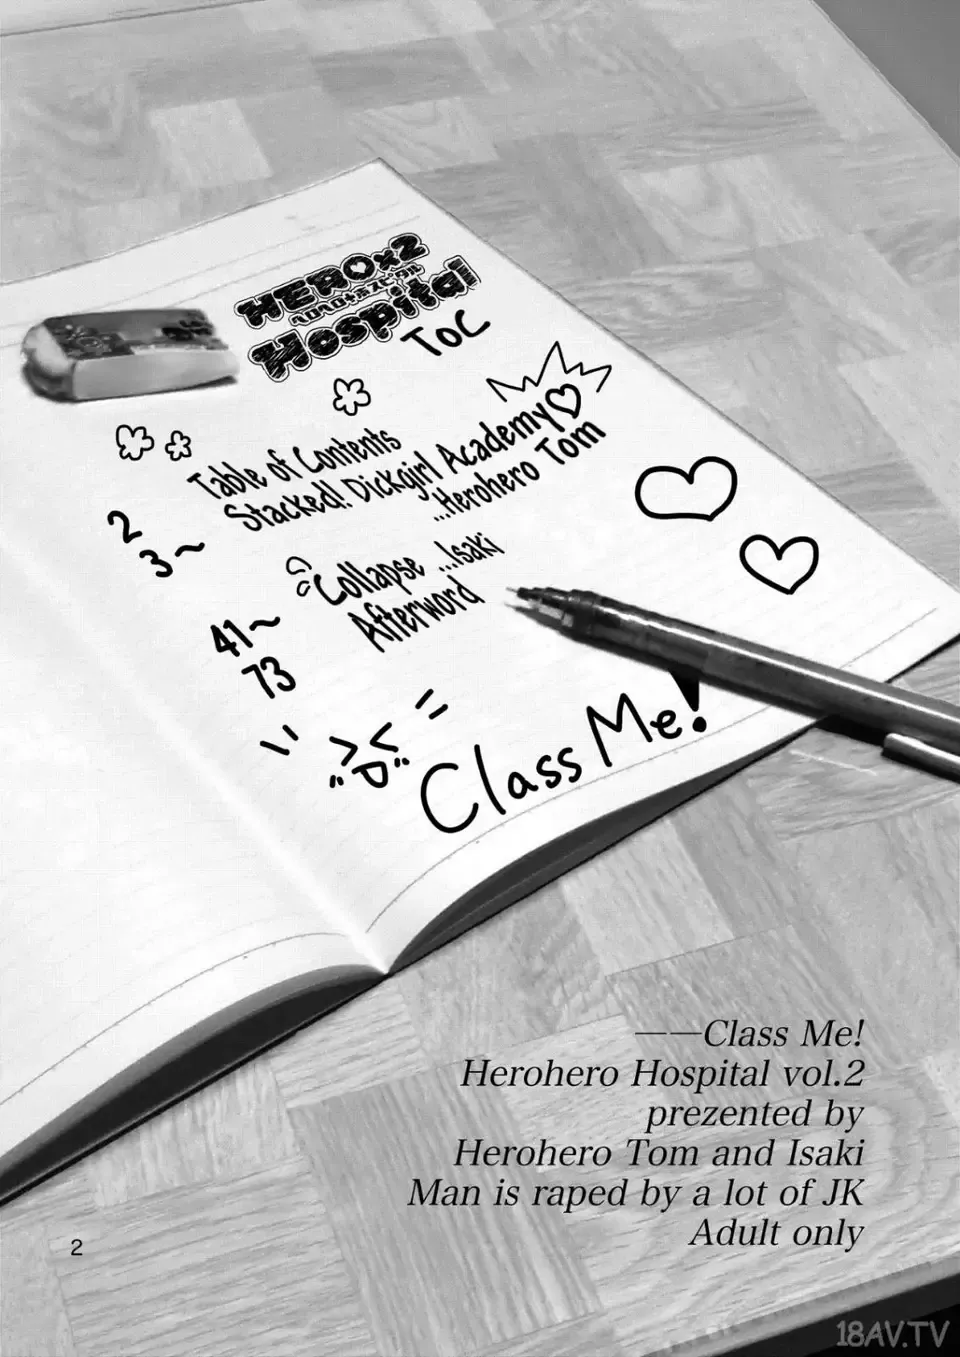 HEROx2
ヘロヘロホスピタル
Hospital
ToC
2 Table of Contents
3~ Stacked! Dickgirl Academy♡
...Herohero Tom
41~ Collapse ...Isaki
73 Afterword
Class Me!
——Class Me!
Herohero Hospital vol.2
prezented by
Herohero Tom and Isaki
Man is raped by a lot of JK
Adult only
2
18AV.TV